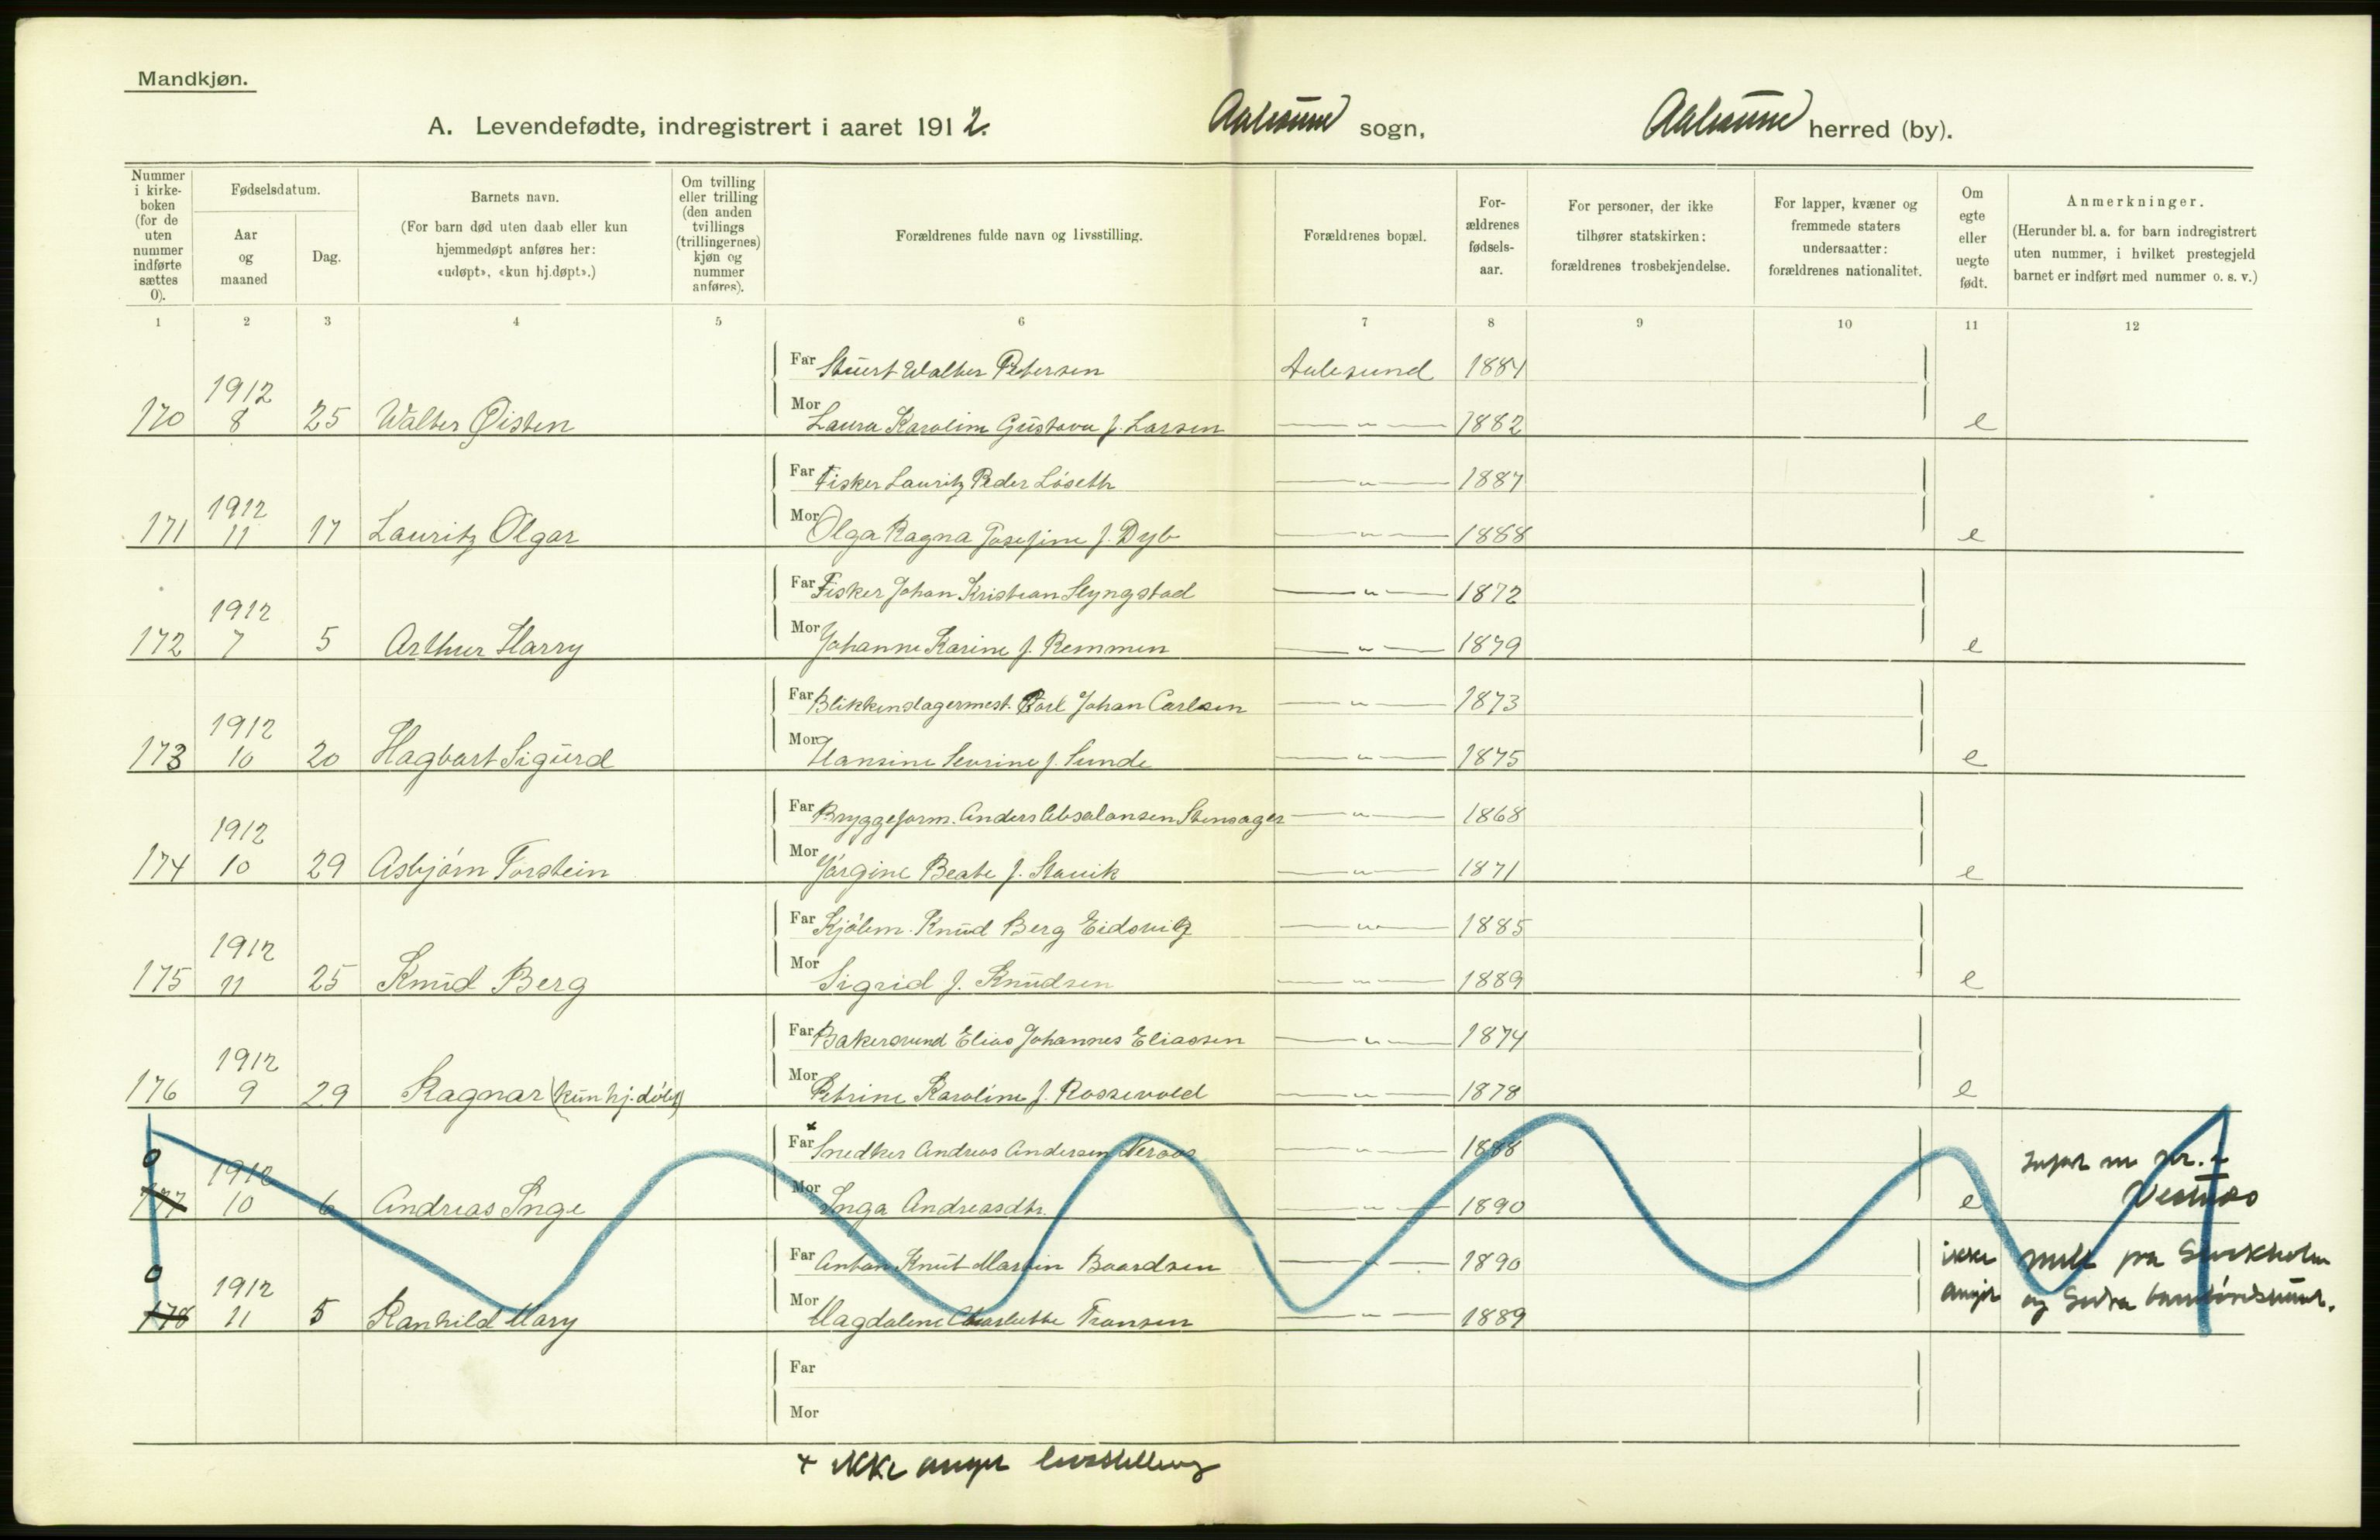 Mandkjøn.
A. Levendefødte, indregistrert i aaret 1912. Aalesund sogn, Aalesund herred (by).
Nummer i kirke-boken (for de uten nummer indførte sættes 0).
Fødselsdatum.
Aar og maaned
Dag.
Barnets navn.
(For barn død uten daab eller kun hjemmedøpt anføres her: «udøpt», «kun hj.døpt».)
Om tvilling eller trilling (den anden tvillings (trillingernes) kjøn og nummer anføres).
Forældrenes fulde navn og livsstilling.
Forældrenes bopæl.
For-ældrenes fødsels-aar.
For personer, der ikke tilhører statskirken: forældrenes trosbekjendelse.
For lapper, kvæner og fremmede staters undersaatter: forældrenes nationalitet.
Om egte eller uegte født.
Anmerkninger.
(Herunder bl. a. for barn indregistrert uten nummer, i hvilket prestegjeld barnet er indført med nummer o. s. v.)
1 2 3 4 5 6 7 8 9 10 11 12
Far Walter Petersen Aalesund 1884
170 1912 8 25 Walter Øisten Mor Laura Karoline Gustava f. Larsen —„— 1882 e
Far Fisker Lauritz Peder Löseth —„— 1887
171 1912 11 17 Lauritz Olgar Mor Olga Ragna Josefine f. Dyb —„— 1888 e
Far Fisker Johan Kristian Slyngstad —„— 1872
172 1912 7 5 Arthur Harry Mor Johanne Karine f. Remmen —„— 1879 e
Far Blikkenslagermest. Karl Johan Carlsen —„— 1873
173 1912 10 20 Hagbart Sigurd Mor Hansine Severine f. Sunde —„— 1875 e
Far Bryggeform. Anders Absalonsen Stensager —„— 1868
174 1912 10 29 Asbjörn Torstein Mor Jörgine Beate f. Stavik —„— 1871 e
Far Kjölem. Knud Berg Eidsvig —„— 1885
175 1912 11 25 Knud Berg Mor Sigrid f. Knudsen —„— 1889 e
Far Bakersvend Elias Johannes Eliassen —„— 1874
176 1912 9 29 Ragnar (kun hj. döbt) Mor Petrine Karoline f. Rossevold —„— 1878 e
0 Far x Snedker Andreas Andersen —„— 1888
177 1912 10 6 Andreas Inge Mor Inga Andreasdtr. —„— 1890 e
0 Far Anton Knut Martin Baardsen —„— 1890 ikke
178 1912 11 5 Ranhild Mary Mor Magdalene Charlotte Fransen —„— 1889 angit
Far
Mor
+ ikke angit livsstilling